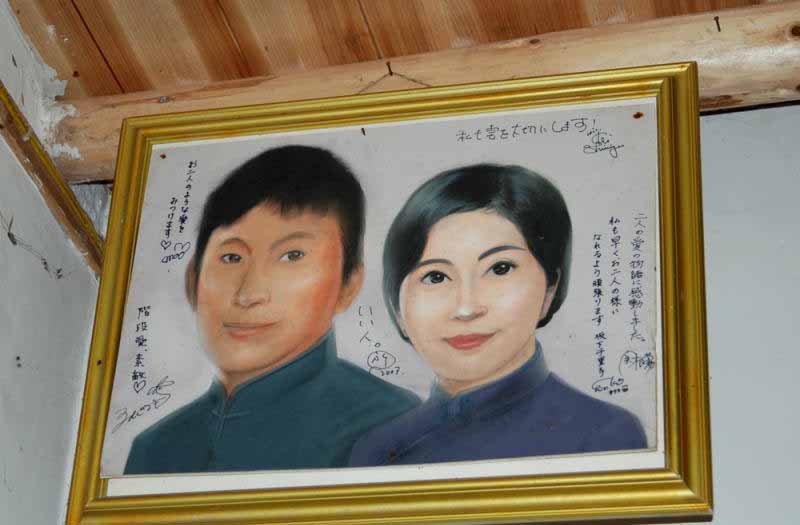 私も雲を大切にします!
お二人のような愛を
みつけます♡
階段愛、素敵♡
いい人。
2007
二人の愛の物語に感動しました。
私も早くお二人の様に
なれるよう頑張ります